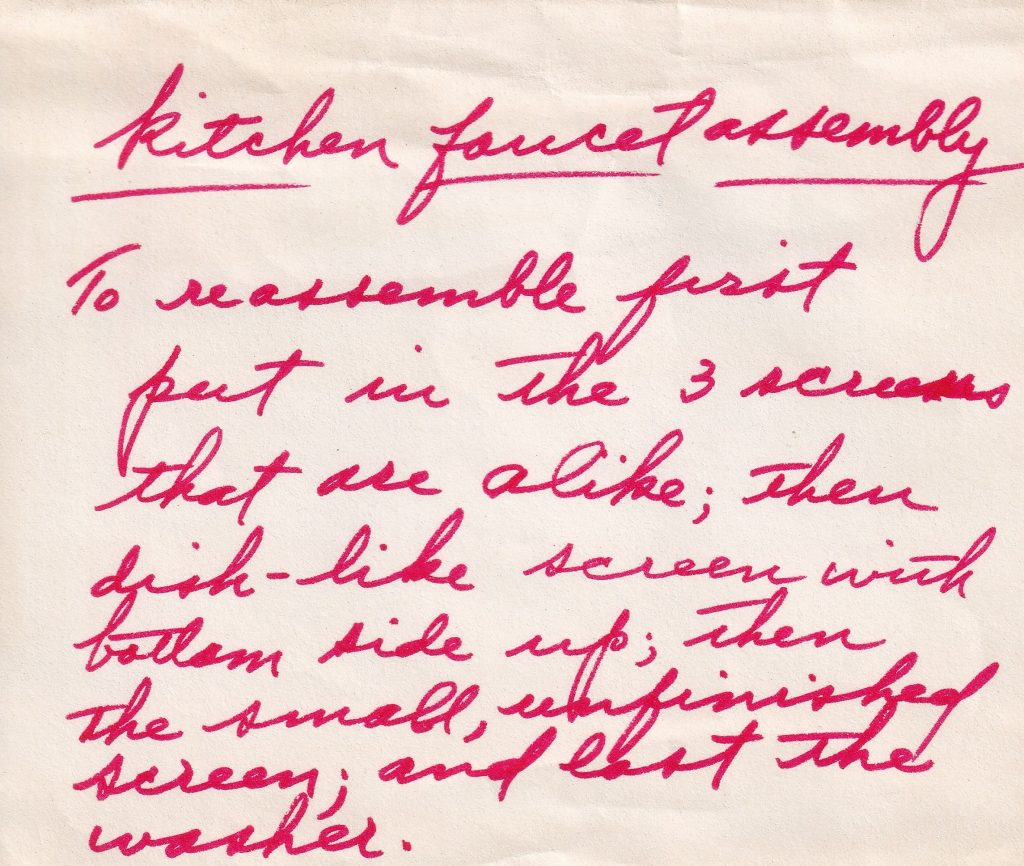 kitchen faucet assembly
To reassemble first
put in the 3 screens
that are alike; then
dish-like screen with
bottom side up; then
the small, unfinished
screen; and last the
washer.